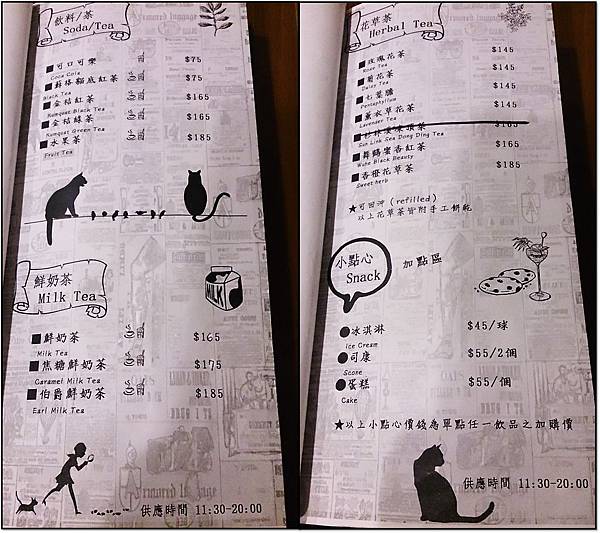 飲料/茶
Soda/Tea
可口可樂 $75
Coca Cola
蘇格貓底紅茶 $75
Black Tea
金桔紅茶 $165
Kumquat Black Tea
金桔綠茶 $165
Kumquat Green Tea
水果茶 $185
Fruit Tea
鮮奶茶
Milk Tea
MILK
鮮奶茶 $165
Milk Tea
焦糖鮮奶茶 $175
Caramel Milk Tea
伯爵鮮奶茶 $185
Earl Milk Tea
供應時間 11:30-20:00
花草茶
Herbal Tea
玫瑰花茶 $145
Rose Tea
菊花茶 $145
Daisy Tea
七葉膽 $145
Pentaphyllum
薰衣草花茶 $145
Lavender Tea
杉林溪凍頂茶 $165
Sun Link Sea Dong Ding Tea
舞鶴蜜香紅茶 $165
Wuhe Black Beauty
香橙花草茶 $185
Sweet herb
★可回沖 (refilled)
以上花草茶皆附手工餅乾
小點心
Snack
加點區
冰淇淋 $45/球
Ice Cream
司康 $55/2個
Scone
蛋糕 $55/個
Cake
★以上小點心價錢為單點任一飲品之加購價
供應時間 11:30-20:00